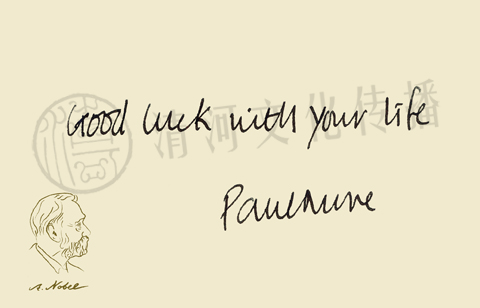 Good luck with your life
清河文化传播
Paul Nurse
A. Nobel